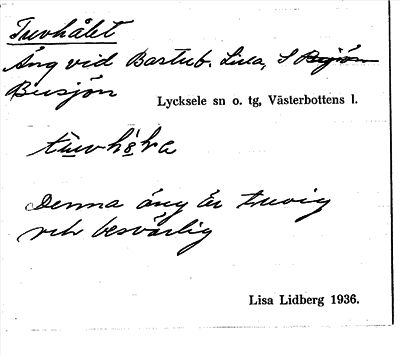 Tuvhålet
Äng vid Bastub. Lisa, S
Busjön
Lycksele sn o. tg, Västerbottens l.
tùvhò̵ḷa
Denna äng är tuvig
och besvärlig
Lisa Lidberg 1936.